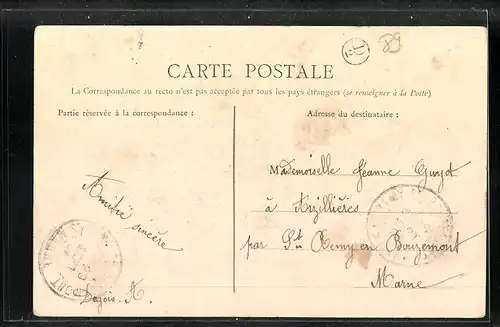 89
CARTE POSTALE
La Correspondance au recto n'est pas acceptée par tous les pays étrangers (se renseigner à la Poste)
Partie réservée à la correspondance :
Adresse du destinataire :
Amitié
sincère
Degois. A.
Mademoiselle Jeanne Guyot
à Arzillières
par St Remy en Bouzemont
Marne